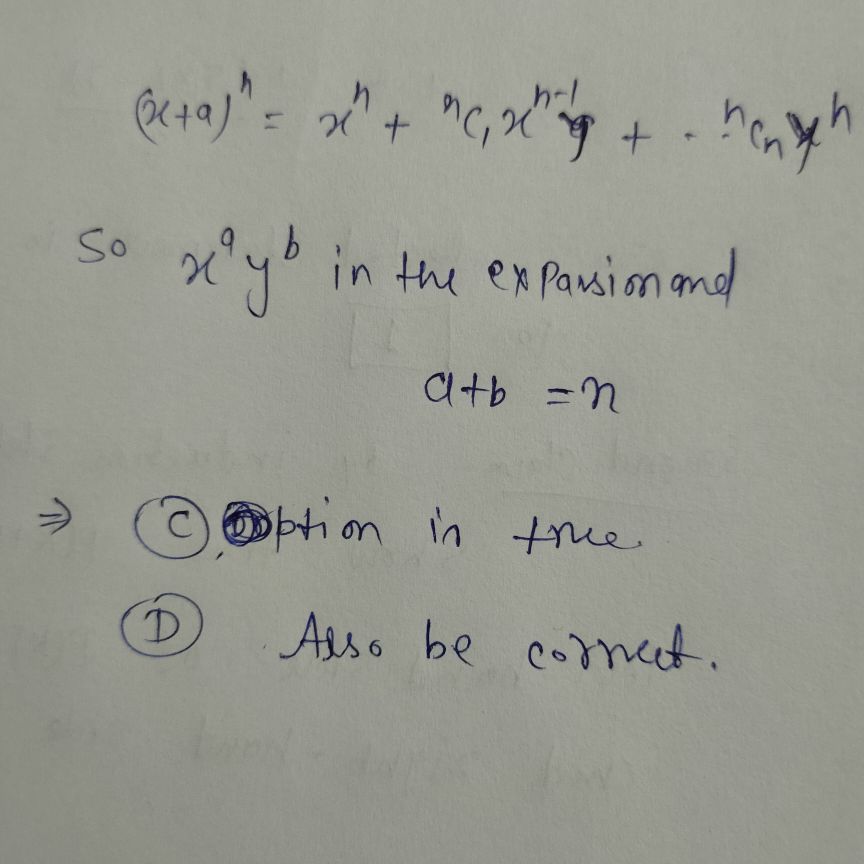 (x+a)^n = x^n + ^nC_1 x^{n-1} y + - .. ^nC_n y^n
So x^a y^b in the expansion and
a+b = n
⇒ (C) option in true.
(D) Also be correct.